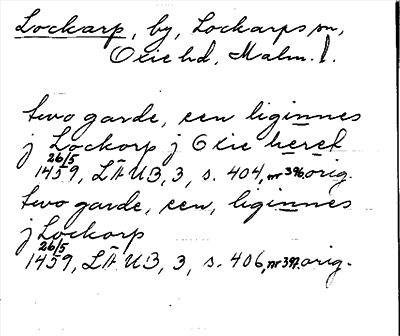 Lockarp, by, Lockarps sn,
Oxie hd, Malm. l.
two garde, een liginnes
j Lockorp j Oxie heret
26/5
1459, LÄUB, 3, s. 404, nr 396 orig.
two garde, een, liginnes
j Lockorp
26/5
1459, LÄUB, 3, s. 406, nr 397. orig.